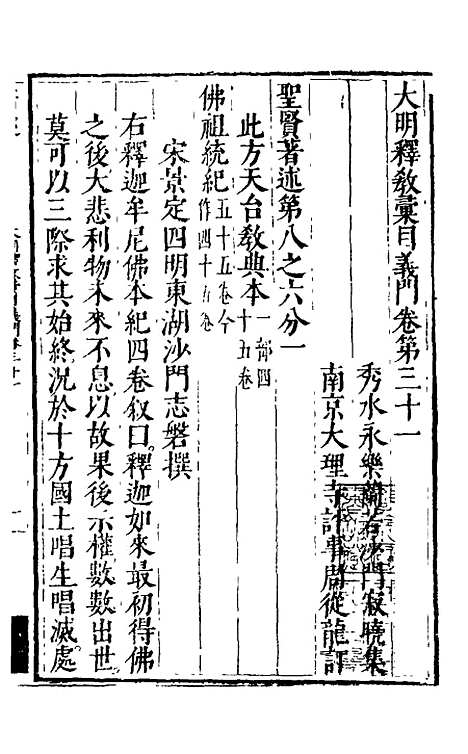 大明釋教彙目義門卷第三十一
秀水永樂蘭若沙門寂曉集
南京大理寺評事虞從龍訂
聖賢著述第八之六分一
此方天台教典本一部四十五卷
佛祖統紀五十五卷今作四十五卷
宋景定四明東湖沙門志磐撰
右釋迦牟尼佛本紀四卷叙曰釋迦如來最初得佛
之後大悲利物未來不息以故果後示權數數出世
莫可以三際求其始終況於十方國土唱生唱滅處